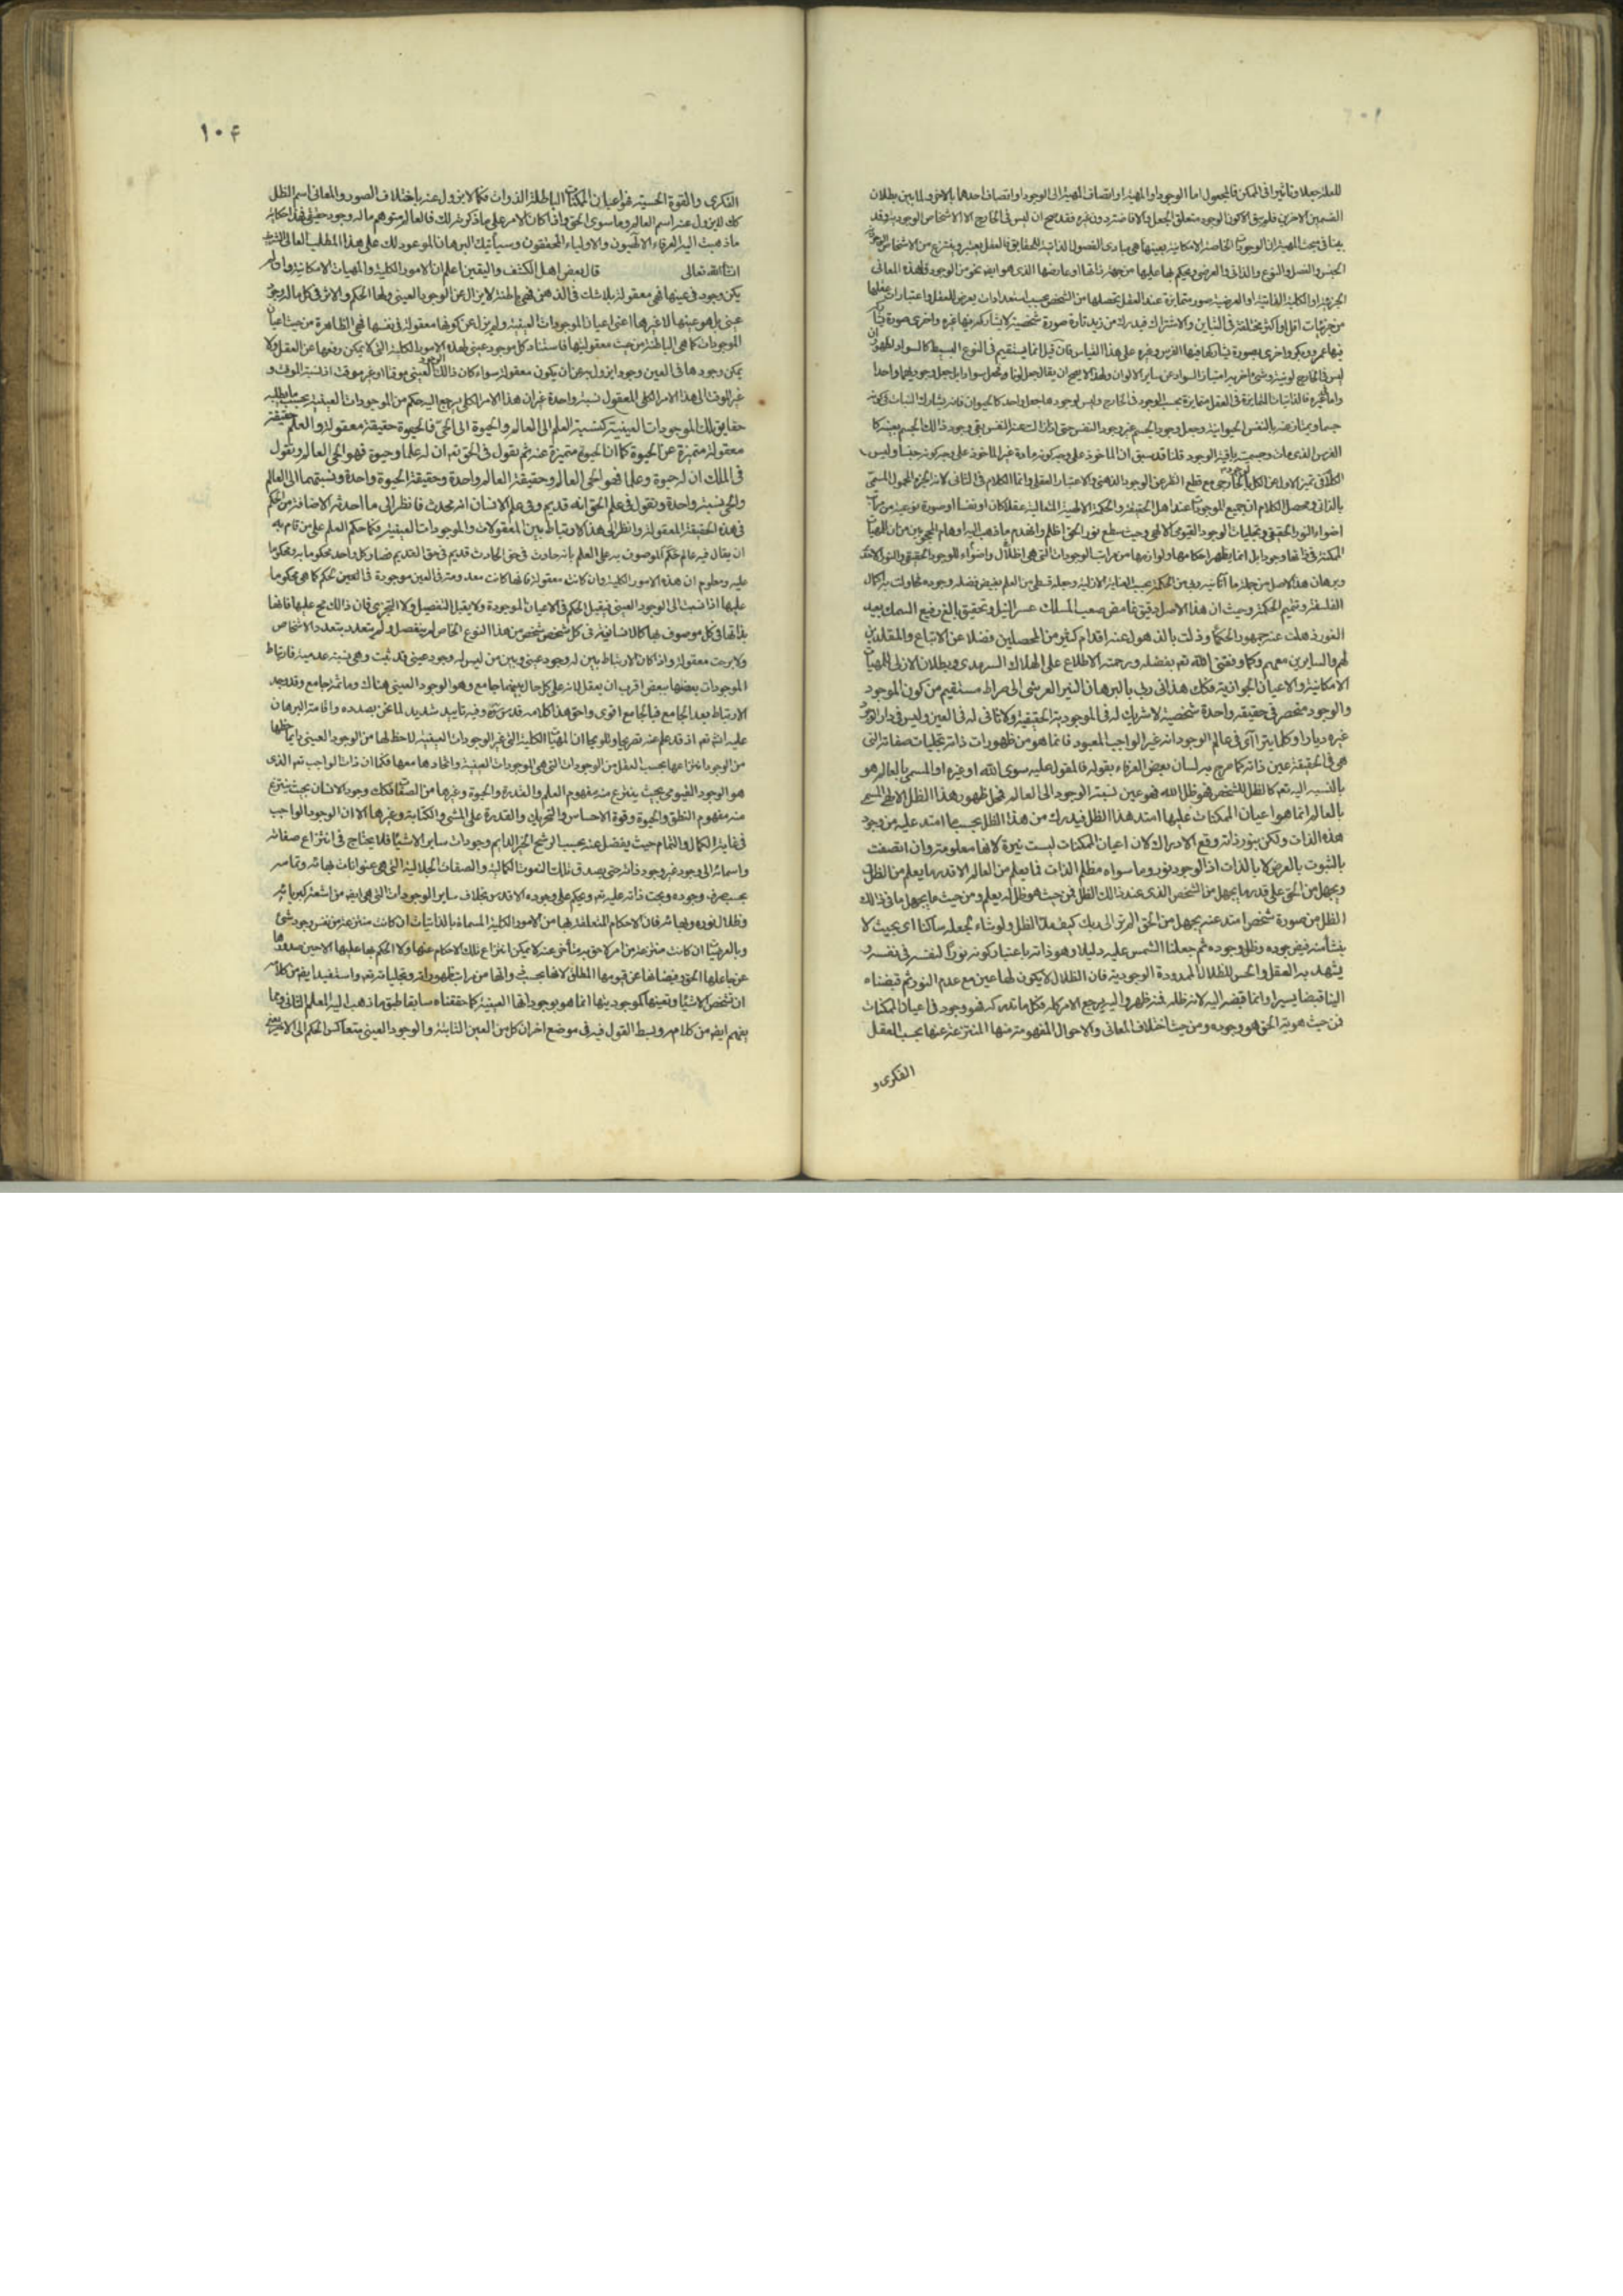 للعلة جعلا وتأثيرا في الممكن فالمجعول اما الوجود او المهية او اتصاف المهية الى الوجود او اتصاف احدهما بالاخر ولما بين بطلان
القسمين الاخرين فلم يبق الا كون الوجود متعلق الجعل والافاضة دون غيره فقد صح ان ليس في الخارج الا الاشخاص الوجودية وقد
بينا في مبحث المهية ان الوجودات الخاصة الامكانية بعينها هي مبادى الفصول الذاتية للحقايق فالعقل يعتبر وينتزع من الاشخاص الوجودية
الجنس والفصل والنوع والذاتى والعرضى ويحكم بها عليها من جهة ذاتها او عارضها الذى هو ايضا نحو من الوجود فهذه المعانى
الجزئية او الكلية الذاتية او العرضية صور متمايزة عند العقل يحصلها من الشخص بحسب استعدادات يعرض للعقل واعتبارات يتعقلها
من جزئيات اقل او اكثر مختلفة في التباين والاشتراك فيدرك من زيد تارة صورة شخصية لا يشاركه فيها غيره واخرى صورة يشاركه
فيها عمرو وبكر واخرى صورة يشاركه فيها الفرس وغيره على هذا القياس فان قيل انما يستقيم في النوع البسيط كالسواد لظهور ان
ليس في الخارج لونية وشئ اخر به امتياز السواد عن ساير الالوان ولهذا لا يصح ان يقال جعل لونا وجعل سوادا بل جعل وجودهما واحدا
واما غيره فالذاتيات المتمايزة في العقل متمايزة بحسب الوجود في الخارج وليس لوجودها جعل واحد كالحيوان فانه يشارك النبات في كونه
جسما ويمتاز عنه بالنفس الحيوانية وجعل وجود الجسم غير وجود النفس حتى اذا زالت عنه النفس بقى وجود ذالك الجسم بعينه كا
الفرس الذى مات وجسميته باقية الوجود قلنا قد سبق ان الماخوذ على وجه كونه مادة غير الماخوذ على وجه كونه جنسا وليس
الكلام في تميز الاول عن الكل بالوجود الخارجى مع قطع النظر عن الوجود الذهنى والاعتبار العقلى وانما الكلام في الثانى لانه الجزء المحمول المسمى
بالذاتى ومحصل الكلام ان جميع الموجودات عند اهل الحقيقة والحكمة الالهية المتعالية عقلا كان او نفسا او صورة نوعية من مراتب
اضواء النور الحقيقى وتجليات الوجود القيومى الالهى وحيث سطع نور الحق اظلم وانهدم ما ذهب اليه اوهام المحجوبين من ان للمهيات
الممكنة في ذاتها وجودا بل انما يظهر احكامها ولوازمها من مراتب الوجودات التى هى اظلال واضواء للوجود الحقيقى والنور الاحدى
وبرهان هذا الاصل من جملة ما آتانيه ربى من الحكمة بحسب العناية الازلية وجعله قسطى من العلم بفيض فضله وجوده فحاولت به اكمال
الفلسفة وتتميم الحكمة وحيث ان هذا الاصل دقيق غامض صعب المسلك عسر النيل وتحقيق بالغ رفيع السمك بعيد
الغور ذهلت عنه جمهور الحكماء وزلت بالذهول عنه اقدام كثير من المحصلين فضلا عن الاتباع والمقلدين
لهم والسايرين معهم وكما وفقنى الله تعـ بفضله ورحمته الاطلاع على الهلاك السرمدى وبطلان الازلى للمهيات
الامكانية والاعيان الجوازية فكك هدانى ربى بالبرهان النير العرشى الى صراط مستقيم من كون الموجود
والوجود منحصر في حقيقة واحدة شخصية لا شريك له في الموجودية الحقيقية ولا ثانى له في العين وليس في دار الوجود
غيره ديار وكلما يتراآى في عالم الوجود انه غير الواجب المعبود فانما هو من ظهورات ذاته وتجليات صفاته التى
هى في الحقيقة عين ذاته كما صرح به لسان بعض العرفاء بقوله فالمقول عليه سوى الله او غيره او المسمى بالعالم هو
بالنسبة اليه تعـ كالظل للشخص فهو ظل الله فهو عين نسبة الوجود الى العالم فمحل ظهور هذا الظل الالهى المسمى
بالعالم انما هو اعيان الممكنات عليها امتد هذا الظل فيدرك من هذا الظل بحسب ما امتد عليه من وجود
هذه الذات ولكن بنور ذاته وقع الادراك لان اعيان الممكنات ليست نيرة لانها معدومة وان اتصفت
بالثبوت بالعرض لا بالذات اذ الوجود نور وما سواه مظلم الذات فما يعلم من العالم الا قدر ما يعلم من الظل
ويجهل من الحق على قدر ما يجهل من الشخص الذى عند ذالك الظل فمن حيث هو ظل له يعلم ومن حيث ما يجهل ما في ذالك
الظل من صورة شخص امتد عنه يجهل من الحق الم تر الى ربك كيف مد الظل ولو شاء لجعله ساكنا اى بحيث لا
ينشأ منه فيض جوده وظل وجوده ثم جعلنا الشمس عليه دليلا وهو ذاته باعتبار كونه نورا لنفسه في نفسه و
يشهد به العقل والحس للظلال الممدودة الوجودية فان الظلال لا يكون لها عين مع عدم النور ثم قبضناه
الينا قبضا يسيرا وانما قبضه اليه لانه ظله فمنه ظهر واليه يرجع الامر كله فكل ما ندركه فهو وجود في اعيان الممكنات
فمن حيث هوية الحق هو وجوده ومن حيث اختلاف المعانى والاحوال المفهومة منها المنتزعة عنها بحسب العقل
الفكرى و
١٠۴
الفكرى والقوة الحسية فهو اعيان الممكنات الباطلة الذوات فكما لا يزول عنه باختلاف الصور والمعانى اسم الظل
كك لا يزول عنه اسم العالم وما سوى الحق واذا كان الامر على ما ذكرته لك فالعالم متوهم ما له وجود حقيقى فهذا حكاية
ما ذهبت اليه العرفاء الالهيون والاولياء المحققون وسيأتيك البرهان الموعود لك على هذا المطلب العالى الشريف
انشاء الله تعالى قال بعض اهل الكشف واليقين اعلم ان الامور الكلية والمهيات الامكانية وان لم
يكن وجود في عينها فهى معقولة بلا شك في الذهن فهى باطنة لا يزال عن الوجود العينى ولها الحكم والاثر في كل ما له وجود
عينى بل هو عينها لا غيرها اعنى اعيان الموجودات العينية ولم يزل عن كونها معقولة في نفسها فهى الظاهرة من حيث اعيان
الموجودات كما هى الباطنة من حيث معقوليتها فاستناد كل موجود عينى لهذه الامور الكلية التى لا يمكن رفعها عن العقل ولا
يمكن وجودها في العين وجودا يزول به عن ان يكون معقولة سواء كان ذالك الوجود العينى موقتا او غير موقت اذ نسبة الموقت و
غير الموقت الى هذا الامر الكلى المعقول نسبة واحدة غير ان هذا الامر الكلى يرجع اليه حكم من الموجودات العينية بحسب ما يطلبه
حقايق تلك الموجودات العينية كنسبة العلم الى العالم والحيوة الى الحى فالحيوة حقيقة معقولة والعلم حقيقة
معقولة متميزة عن الحيوة كما ان الحيوة متميزة عنه ثم نقول في الحق تعـ ان له علما وحيوة فهو الحى العالم ونقول
في الملك ان له حيوة وعلما فهو الحى العالم وحقيقة العالم واحدة وحقيقة الحيوة واحدة ونسبتهما الى العالم
والحى نسبة واحدة ونقول في علم الحق انه قديم وفى علم الانسان انه محدث فانظر الى ما احدثه الاضافة من الحكم
في هذه الحقيقة المعقولة وانظر الى هذا الارتباط بين المعقولات والموجودات العينية فكما حكم العلم على من قام به
ان يقال فيه عالم حكم الموصوف به على العلم بانه حادث في حق الحادث قديم في حق القديم فصار كل واحد محكوما به ومحكوما
عليه ومعلوم ان هذه الامور الكلية وان كانت معقولة فانها كانت معدومة في العين موجودة في العين الحكم كما هى محكوما
عليها اذا نسبت الى الوجود العينى فيقبل الحكم في الاعيان الموجودة ولا يقبل التفصيل ولا التجزى فان ذالك مح عليها فانها
بذاتها في كل موصوف بها كالانسانية في كل شخص شخص من هذا النوع الخاص لم يتفصل ولم يتعدد بتعدد الاشخاص
ولا برحت معقولة واذا كان الارتباط بين له وجود عينى وبين من ليس له وجود عينى قد ثبت وهى نسبة عدمية فارتباط
الموجودات بعضها ببعض اقرب ان يعقل لانه على كل حال بينهما جامع وهو الوجود العينى هناك وما ثمة جامع وقد وجد
الارتباط بعد الجامع فبالجامع اقوى واحق هذا كلامه قدس سره وفيه تاييد شديد لما نحن بصدده واقامة البرهان
عليه انشـ تعـ اذ قد علم عنه تصريحا وتلويحا ان المهيات الكلية التى غير الوجودات العينية لا حظ لها من الوجود العينى وانما حظها
من الوجود انتزاعها بحسب العقل من الوجودات التى هى الموجودات العينية واتحادها معها فكما ان ذات الواجب تعـ الذى
هو الوجود القيومى بحيث ينتزع منه مفهوم العلم والقدرة والحيوة وغيرها من الصفات فكك وجود الانسان بحيث ينتزع
منه مفهوم النطق والحيوة وقوة الاحساس والتحريك والقدرة على المشى والكتابة وغيرها الا ان الوجود الواجب
في غاية الكمال والتمام حيث يفضل عنه بحسب الرشح الخير الدايم وجودات ساير الاشياء فلا يحتاج في انتزاع صفاته
واسمائه الى وجود غير وجود ذاته حتى يصدق تلك النعوت الكمالية والصفات الجلالية التى هى عنوانات بهائه وتمامه
بحسب صرف وجوده وبحت ذاته عليه تعـ ويحكم على وجوده الاقدس بخلاف ساير الوجودات التى هى ايضا من اشعة كبريائه
وظلال نوره وبهائه فان الاحكام المتعلقة بها من الامور الكلية المسماة بالذاتيات ان كانت منتزعة من نفس وجود شئ
وبالعرضيات ان كانت منتزعة من امر لاحق به متأخر عنه لا يمكن انتزاع تلك الاحكام عنها ولا الحكم بها عليها الا حين صدورها
عن جاعلها الحق وفيضانها عن قيومها المطلق لانها بحسب ذواتها من مراتب ظهوراته وتجلياته تعـ واستفيد ايضا من كلامه
ان تشخص الاشياء وتعينها كموجوديتها انما هو بوجوداتها العينية كما حققناه سابقا طبق ما ذهب اليه المعلم الثانى ومما
يفهم ايضا من كلامه وبسط القول فيه في موضع اخر ان كل من العين الثابتة والوجود العينى متعاكس الحكم الى الاخر يعنى